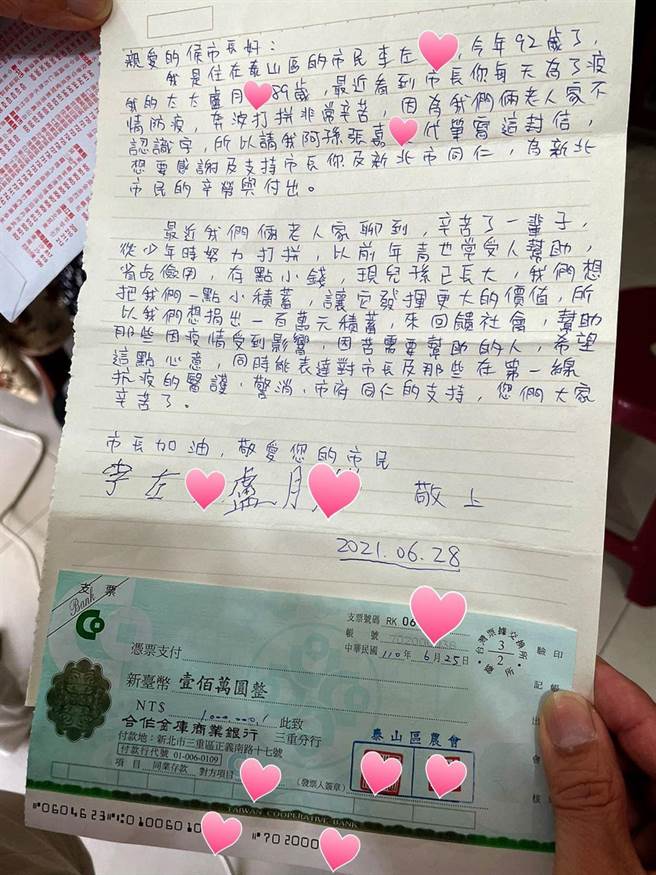 親愛的侯市長好：
我是住在泰山區的市民李左，今年92歲了，
我的太太盧月89歲，最近看到市長你每天為了疫
情防疫，奔波打拼非常辛苦，因為我們倆老人家不
認識字，所以請我阿孫張嘉代筆寫這封信，
想要感謝及支持市長你及新北市同仁，為新北
市民的辛勞與付出。
最近我們倆老人家聊到，辛苦了一輩子，
從少年時努力打拼，以前年青也常受人幫助，
省吃儉用，存點小錢，現兒孫已長大，我們想
把我們一點小積蓄，讓它發揮更大的價值，所
以我們想捐出一百萬元積蓄，來回饋社會，幫助
那些因疫情受到影響，困苦需要幫助的人，希望
這點心意，同時能表達對市長及那些在第一線
抗疫的醫護、警消、市府同仁的支持，您們大家
辛苦了。
市長加油，敬愛您的市民
李左 盧月 敬上
2021.06.28
支票
Bank
支票號碼 RK 06
帳號
中華民國 110年 6月25日
台灣票據交換所
3
2
驗印
記帳
憑票支付
新臺幣 壹佰萬圓整
NT$ 此致
合作金庫商業銀行 三重分行
付款地：新北市三重區正義南路十七號
付款行代號 01-006-0109
項目 同業存款 對方項目
(發票人簽章)
泰山區農會
出
會
核
TAIWAN COOPERATIVE BANK